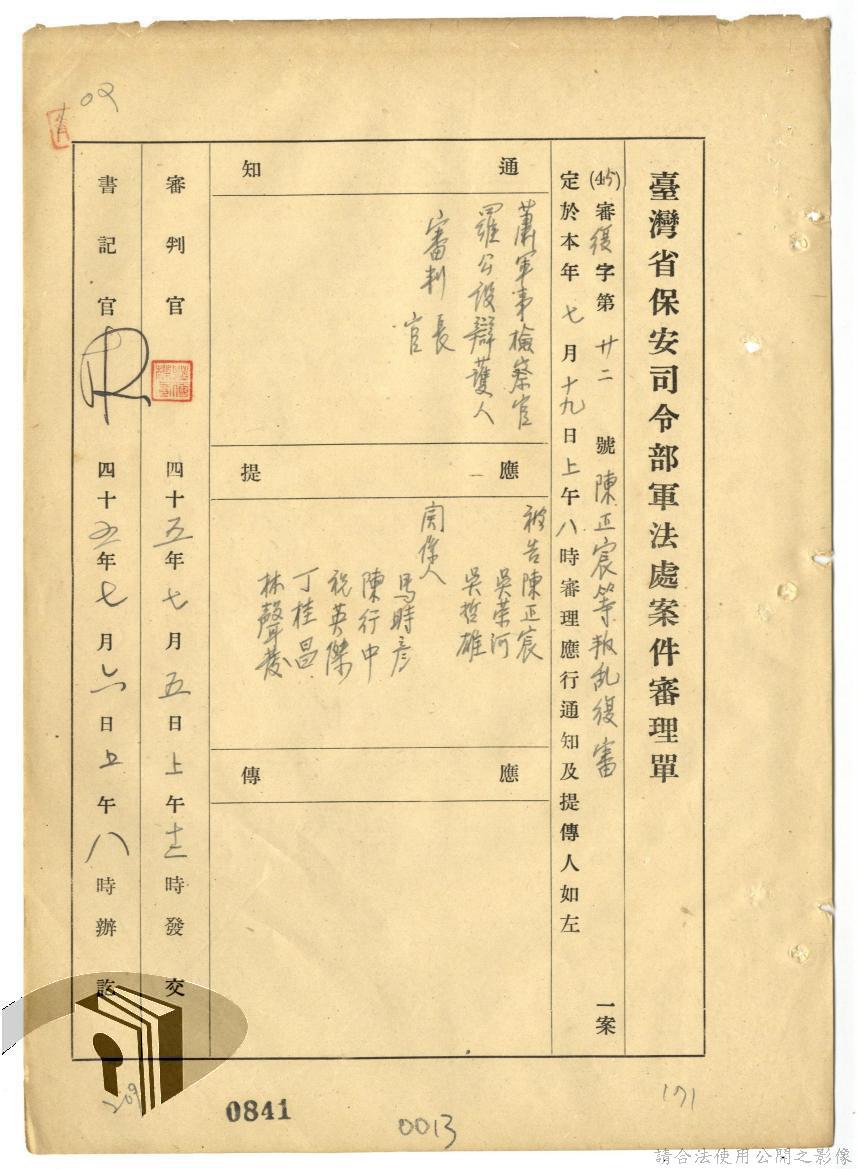 臺灣省保安司令部軍法處案件審理單
(45)審復字第廿二號陳正宸等叛乱復審一案
定於本年七月十九日上午八時審理應行通知及提傳人如左
通知
蕭軍事檢察官
羅公設辯護人
審判長
官
應提
被告陳正宸
吳榮河
吳哲雄
關係人
馬時彥
陳行中
祝英傑
丁桂昌
林聲發
應傳
審判官
四十五年七月五日上午十二時發交
書記官
四十五年七月六日上午八時辦訖
02
209
0841
0013
171
請合法使用公開之影像